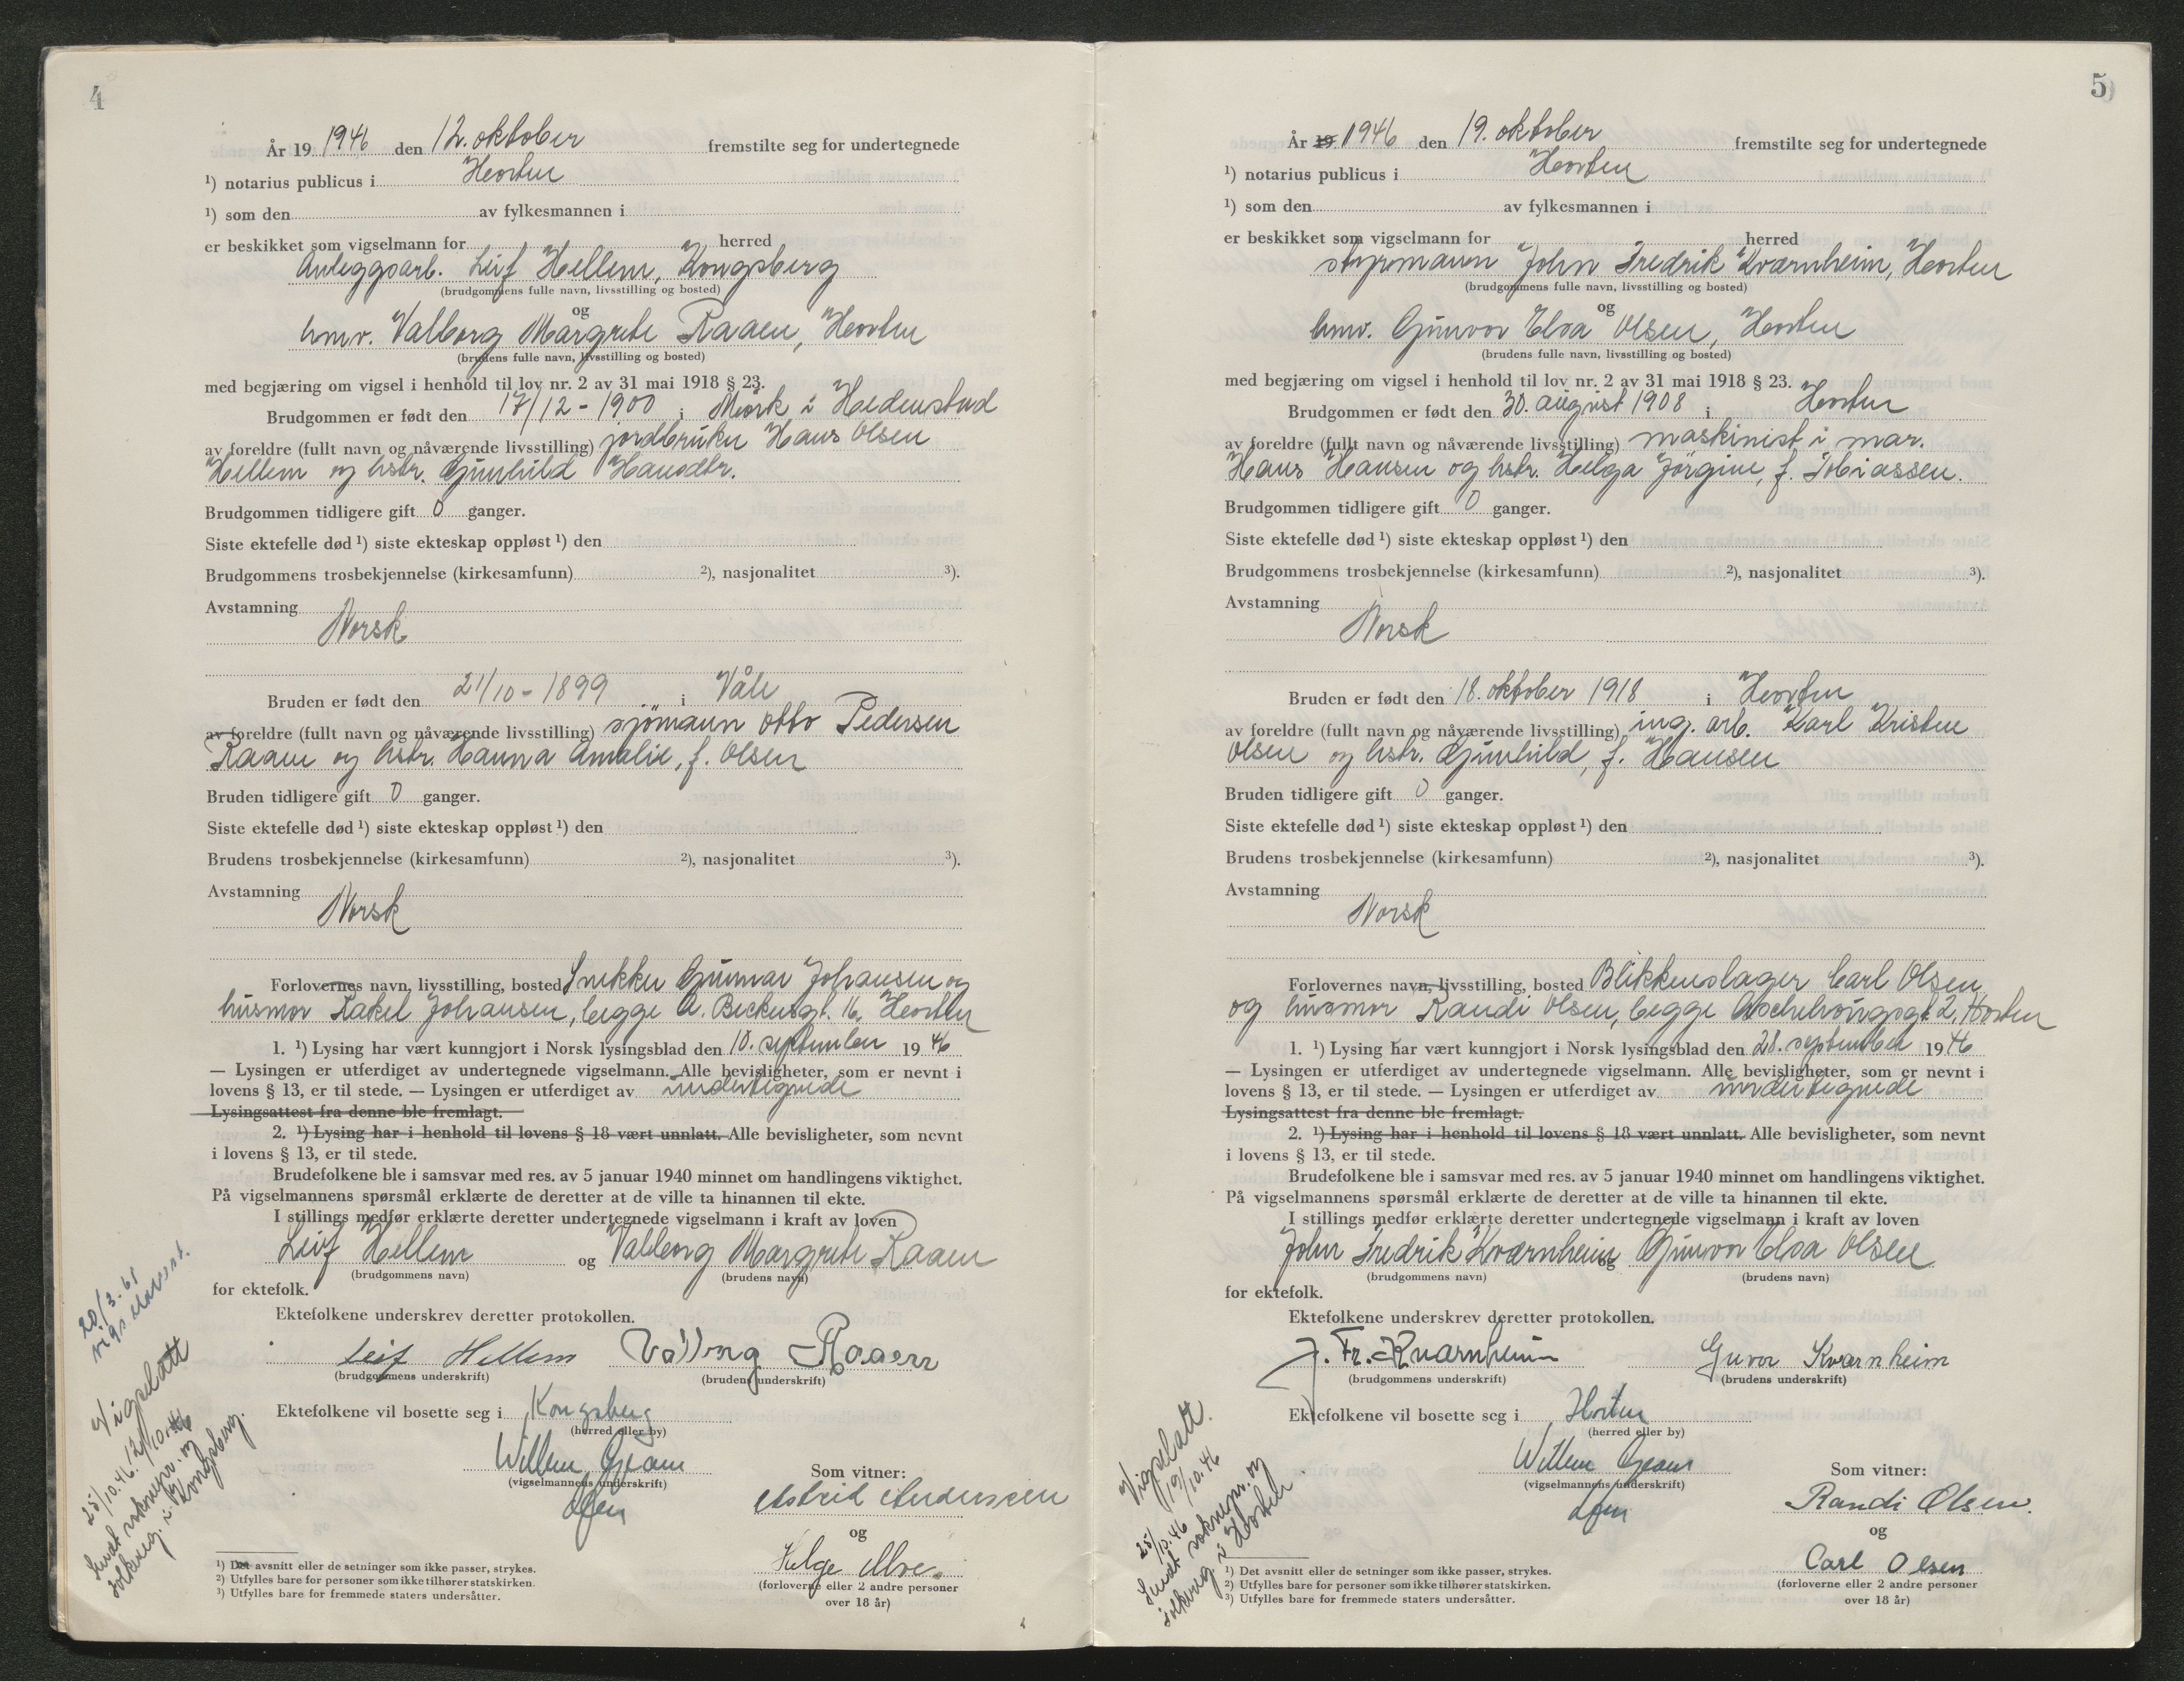 4
År 19 1946 den 12. oktober fremstilte seg for undertegnede
¹) notarius publicus i Horten
¹) som den av fylkesmannen i
er beskikket som vigselmann for herred
Anleggsarb. Leif Hellem, Kongsberg
(brudgommens fulle navn, livsstilling og bosted)
og
hmv. Valborg Margrete Raaen, Horten
(brudens fulle navn, livsstilling og bosted)
med begjæring om vigsel i henhold til lov nr. 2 av 31 mai 1918 § 23.
Brudgommen er født den 17/12 - 1900 i Mørk i Hedenstad
av foreldre (fullt navn og nåværende livsstilling) jordbruker Hans Olsen
Hellem og hstr. Gunhild Hansdtr.
Brudgommen tidligere gift 0 ganger.
Siste ektefelle død ¹) siste ekteskap oppløst ¹) den
Brudgommens trosbekjennelse (kirkesamfunn) ²), nasjonalitet ³).
Avstamning
Norsk
Bruden er født den 21/10 - 1899 i Våle
av foreldre (fullt navn og nåværende livsstilling) sjømann Otto Pedersen
Raaen og hstr. Hanna Amalie, f. Olsen
Bruden tidligere gift 0 ganger.
Siste ektefelle død ¹) siste ekteskap oppløst ¹) den
Brudens trosbekjennelse (kirkesamfunn) ²), nasjonalitet ³).
Avstamning
Norsk
Forlovernes navn, livsstilling, bosted Snekker Gunnar Johansen og
husmor Rakel Johansen, begge A. Beckersgt. 16, Horten
1. ¹) Lysing har vært kunngjort i Norsk lysingsblad den 10. september 19 46
— Lysingen er utferdiget av undertegnede vigselmann. Alle bevisligheter, som er nevnt i
lovens § 13, er til stede. — Lysingen er utferdiget av undertegnede
Lysingsattest fra denne ble fremlagt.
2. ¹) Lysing har i henhold til lovens § 18 vært unnlatt. Alle bevisligheter, som nevnt
i lovens § 13, er til stede.
Brudefolkene ble i samsvar med res. av 5 januar 1940 minnet om handlingens viktighet.
På vigselmannens spørsmål erklærte de deretter at de ville ta hinannen til ekte.
I stillings medfør erklærte deretter undertegnede vigselmann i kraft av loven
Leif Hellem og Valborg Margrete Raaen
(brudgommens navn) (brudens navn)
for ektefolk.
Ektefolkene underskrev deretter protokollen.
Leif Hellem Valborg Raaen
(brudgommens underskrift) (brudens underskrift)
Ektefolkene vil bosette seg i Kongsberg
(herred eller by)
Willem
(vigselmannens underskrift)
Som vitner:
Astrid Andersen
og
Helge
(forloverne eller 2 andre personer
over 18 år)
20/3.61
vigselsattest.
Vigselatt
12/10.46
25/10.46
Sendt soknepr. og
folkereg. i Kongsberg.
¹) Det avsnitt eller de setninger som ikke passer, strykes.
²) Utfylles bare for personer som ikke tilhører statskirken.
³) Utfylles bare for fremmede staters undersåtter.
5
År 19 1946 den 19. oktober fremstilte seg for undertegnede
¹) notarius publicus i Horten
¹) som den av fylkesmannen i
er beskikket som vigselmann for herred
styrmann John Fredrik Kvarnheim, Horten
(brudgommens fulle navn, livsstilling og bosted)
og
hmv. Gunvor Elsa Olsen, Horten
(brudens fulle navn, livsstilling og bosted)
med begjæring om vigsel i henhold til lov nr. 2 av 31 mai 1918 § 23.
Brudgommen er født den 30. august 1908 i Horten
av foreldre (fullt navn og nåværende livsstilling) maskinist i mar.
Hans Hansen og hstr. Helga Jørgine, f. Tobiassen.
Brudgommen tidligere gift 0 ganger.
Siste ektefelle død ¹) siste ekteskap oppløst ¹) den
Brudgommens trosbekjennelse (kirkesamfunn) ²), nasjonalitet ³).
Avstamning
Norsk
Bruden er født den 18. oktober 1918 i Horten
av foreldre (fullt navn og nåværende livsstilling) ing. arb. Karl Kristen
Olsen og hstr. Gunhild, f. Hansen
Bruden tidligere gift 0 ganger.
Siste ektefelle død ¹) siste ekteskap oppløst ¹) den
Brudens trosbekjennelse (kirkesamfunn) ²), nasjonalitet ³).
Avstamning
Norsk
Forlovernes navn, livsstilling, bosted Blikkenslager Carl Olsen
og husmor Randi Olsen, begge 2, Horten
1. ¹) Lysing har vært kunngjort i Norsk lysingsblad den 28. september 19 46
— Lysingen er utferdiget av undertegnede vigselmann. Alle bevisligheter, som er nevnt i
lovens § 13, er til stede. — Lysingen er utferdiget av undertegnede
Lysingsattest fra denne ble fremlagt.
2. ¹) Lysing har i henhold til lovens § 18 vært unnlatt. Alle bevisligheter, som nevnt
i lovens § 13, er til stede.
Brudefolkene ble i samsvar med res. av 5 januar 1940 minnet om handlingens viktighet.
På vigselmannens spørsmål erklærte de deretter at de ville ta hinannen til ekte.
I stillings medfør erklærte deretter undertegnede vigselmann i kraft av loven
John Fredrik Kvarnheim og Gunvor Elsa Olsen
(brudgommens navn) (brudens navn)
for ektefolk.
Ektefolkene underskrev deretter protokollen.
J. Fr. Kvarnheim Guvor Kvarnheim
(brudgommens underskrift) (brudens underskrift)
Ektefolkene vil bosette seg i Horten
(herred eller by)
Willem
(vigselmannens underskrift)
Som vitner:
Randi Olsen.
og
Carl Olsen
(forloverne eller 2 andre personer
over 18 år)
Vigselatt.
19/10.46
25/10.46
Sendt soknepr. og
folkereg. i Horten
¹) Det avsnitt eller de setninger som ikke passer, strykes.
²) Utfylles bare for personer som ikke tilhører statskirken.
³) Utfylles bare for fremmede staters undersåtter.